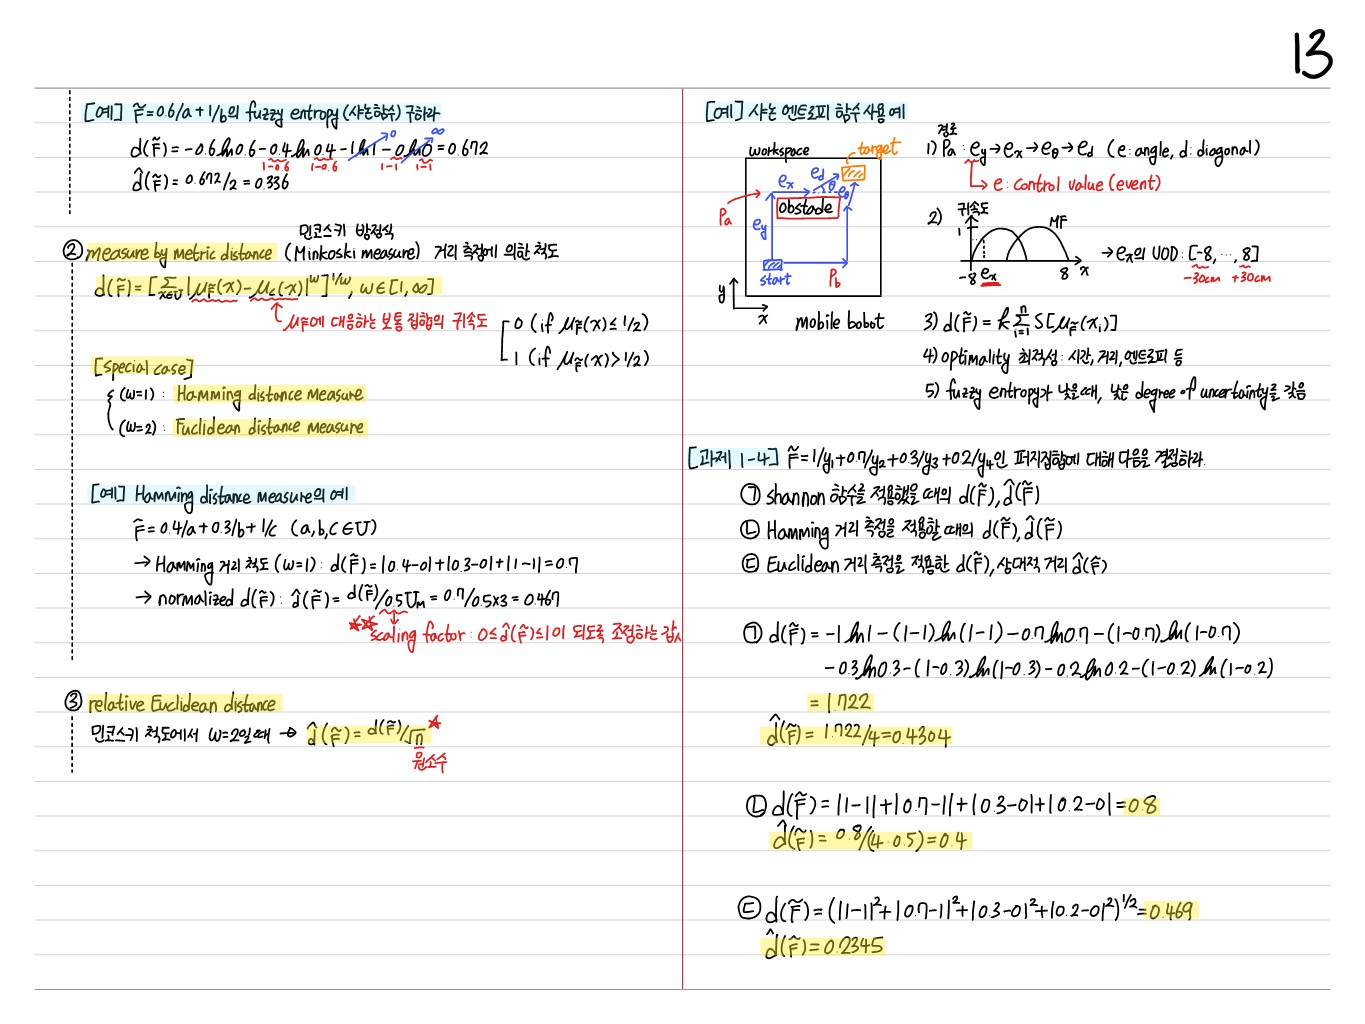 13
[예] F̃=0.6/a+1/b의 fuzzy entropy (샤논함수) 구하라
d(F̃)=-0.6ln0.6-0.4ln0.4-1ln1-0ln0=0.672
0
∞
1-0.6 1-0.6 1-1 1-1
d̂(F̃)=0.672/2=0.336
민코스키 방정식
② measure by metric distance (Minkoski measure) 거리 측정에 의한 척도
d(F̃)=[Σx∈U|μF̃(x)-μc(x)|^w]^1/w, w∈[1,∞]
μF̃에 대응하는 보통 집합의 귀속도
0 (if μF̃(x)≤1/2)
1 (if μF̃(x)>1/2)
[special case]
(w=1): Hamming distance measure
(w=2): Fuclidean distance measure
[예] Hamming distance measure의 예
F̃=0.4/a+0.3/b+1/c (a,b,c∈U)
→ Hamming 거리 척도 (w=1): d(F̃)=|0.4-0|+|0.3-0|+|1-1|=0.7
→ normalized d(F̃): d̂(F̃)=d(F̃)/0.5UM=0.7/0.5x3=0.467
☆☆ scaling factor: 0≤d̂(F̃)≤1이 되도록 조정하는 값
③ relative Euclidean distance
민코스키 척도에서 w=2일 때 → d̂(F̃)=d(F̃)/√n ☆
원소수
[예] 샤논 엔트로피 함수 사용 예
workspace
target
ex
ed
θ
eθ
Pa
obstacle
ey
start
Pb
y
x
mobile bobot
경로
1) Pa: ey→ex→eθ→ed (e: angle, d: diagonal)
→ e: control value (event)
2) 귀속도
MF
1
-8 ex 8 x
→ ex의 UOD: [-8, ⋯, 8]
-30cm +30cm
3) d(F̃)=k Σ_{i=1}^{n} S[μF̃(xi)]
4) optimality 최적성: 시간, 거리, 엔트로피 등
5) fuzzy entropy가 낮을 때, 낮은 degree of uncertainty를 갖음
[과제 1-4] F̃=1/y1+0.7/y2+0.3/y3+0.2/y4인 퍼지집합에 대해 다음을 결정하라.
㉠ shannon 함수를 적용했을 때의 d(F̃), d̂(F̃)
㉡ Hamming 거리 측정을 적용할 때의 d(F̃), d̂(F̃)
㉢ Euclidean 거리 측정을 적용한 d(F̃), 상대적 거리 d̂(F̃)
㉠ d(F̃)=-1ln1-(1-1)ln(1-1)-0.7ln0.7-(1-0.7)ln(1-0.7)
-0.3ln0.3-(1-0.3)ln(1-0.3)-0.2ln0.2-(1-0.2)ln(1-0.2)
=1.722
d̂(F̃)=1.722/4=0.4304
㉡ d(F̃)=|1-1|+|0.7-1|+|0.3-0|+|0.2-0|=0.8
d̂(F̃)=0.8/(4·0.5)=0.4
㉢ d(F̃)=(|1-1|²+|0.7-1|²+|0.3-0|²+|0.2-0|²)^1/2=0.469
d̂(F̃)=0.2345